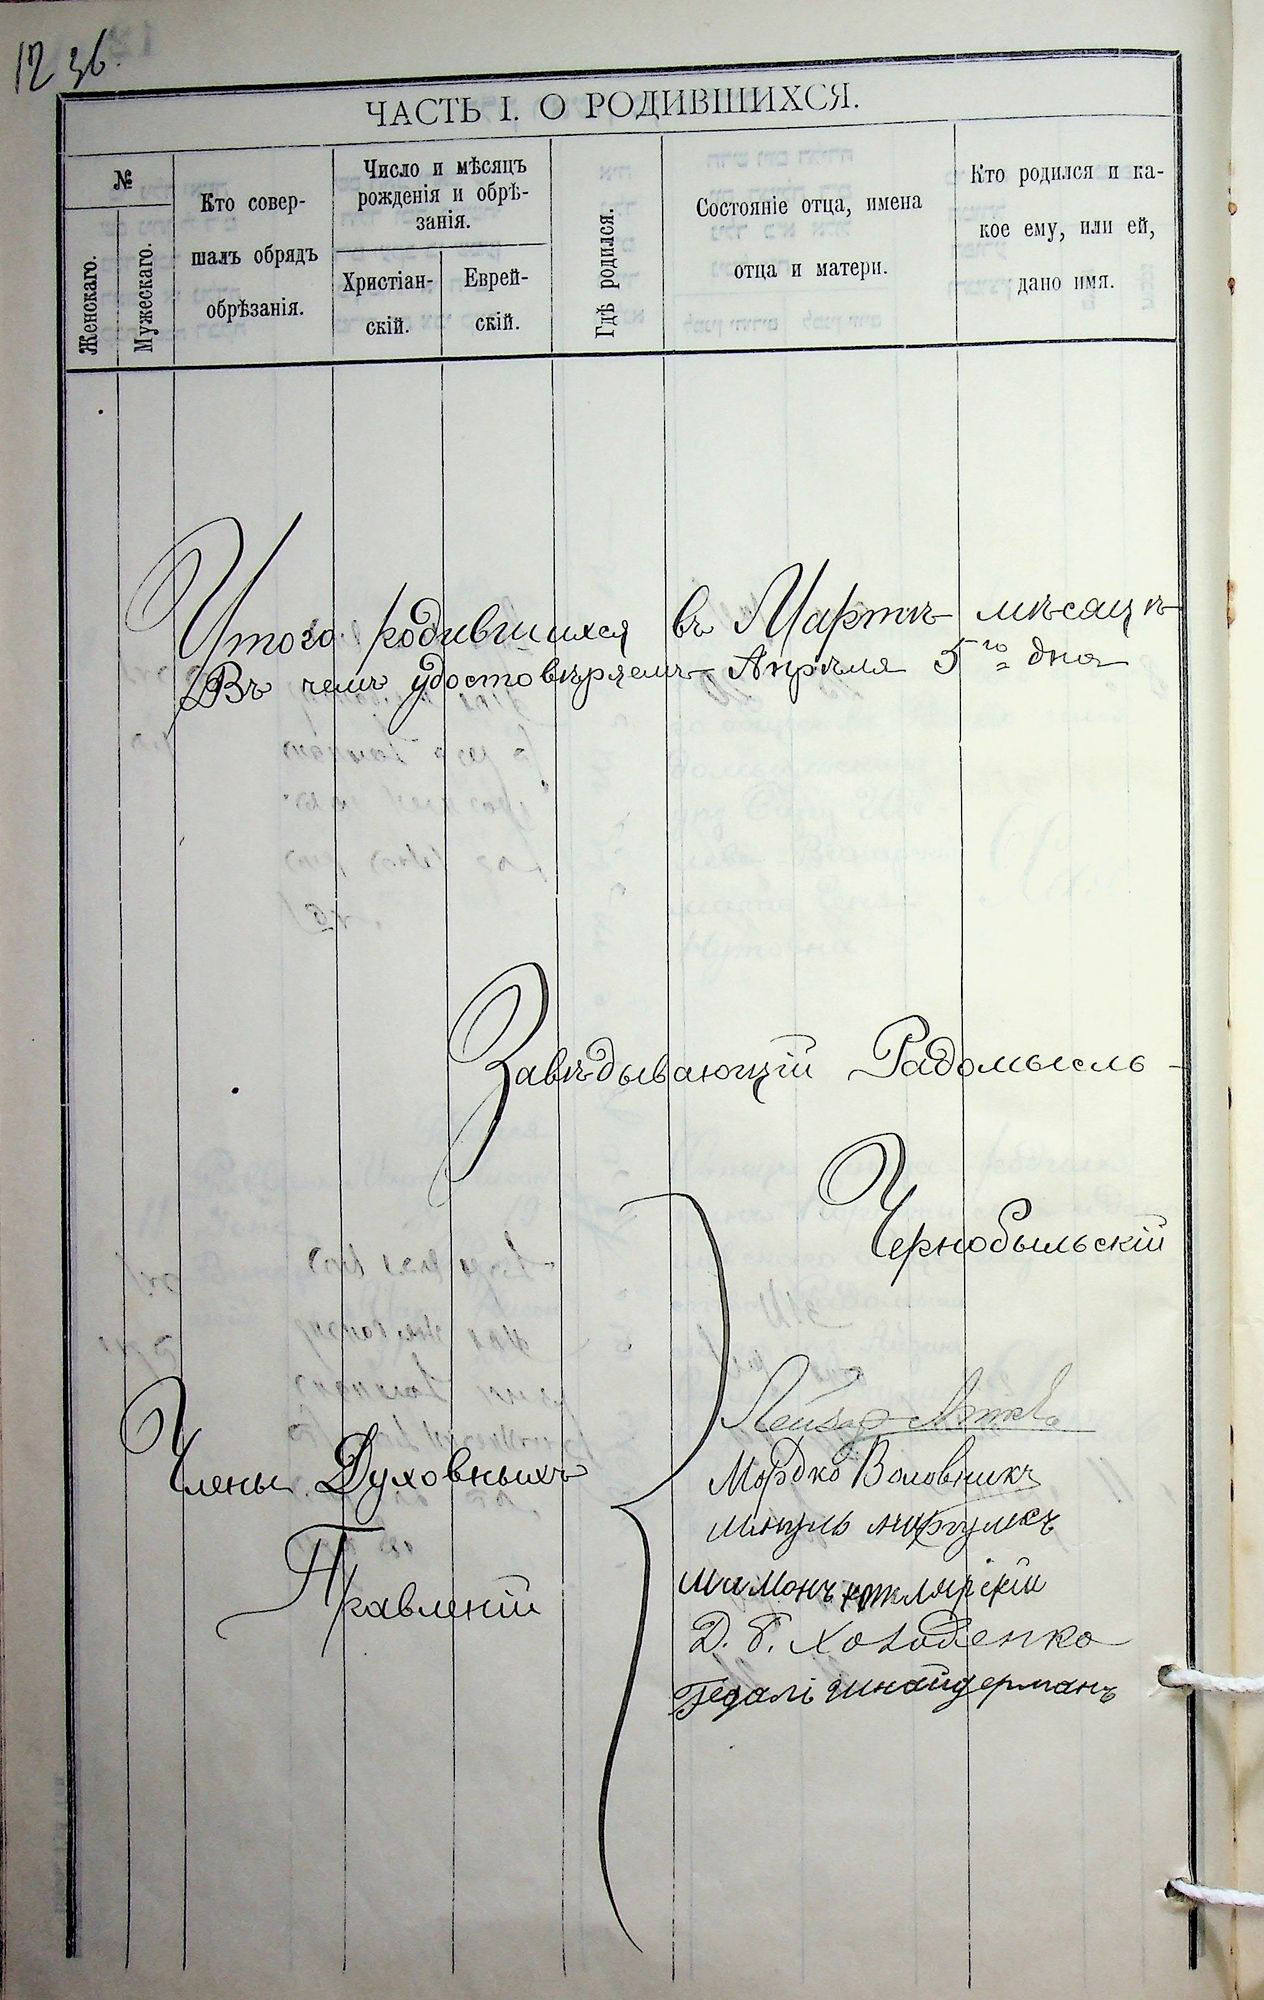 12 зв.
ЧАСТЬ I. О РОДИВШИХСЯ.
№
Женскаго.
Мужескаго.
Кто совер-
шалъ обрядъ
обрѣзанія.
Число и мѣсяцъ
рожденія и обрѣ-
занія.
Христіан-
скій.
Еврей-
скій.
Гдѣ родился.
Состояніе отца, имена
отца и матери.
Кто родился и ка-
кое ему, или ей,
дано имя.
Итого родившихся въ Мартѣ мѣсяцѣ
Въ чемъ удостовѣряемъ Апрѣля 5го дня
Завѣдывающій Радомысль-
Чернобыльскій
Члены Духовныхъ
Правленій
Лейзор
Мордко Воловникъ
Шмуль Маргулисъ
Шимонъ Котлярскій
Д. Г. Холоденко
Гедалі Шнайдерманъ